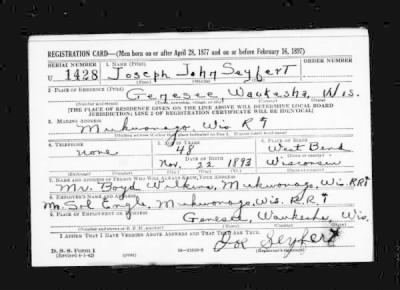 REGISTRATION CARD—(Men born on or after April 28, 1877 and on or before February 16, 1897)
SERIAL NUMBER 1. NAME (Print) ORDER NUMBER
U 1428 Joseph John Seyfert
(First) (Middle) (Last)
2. PLACE OF RESIDENCE (Print)
Genesee, Waukesha, Wis.
(Number and street) (Town, township, village, or city) (County) (State)
[THE PLACE OF RESIDENCE GIVEN ON THE LINE ABOVE WILL DETERMINE LOCAL BOARD
JURISDICTION; LINE 2 OF REGISTRATION CERTIFICATE WILL BE IDENTICAL]
3. MAILING ADDRESS
Mukwonago Wis R 1
(Mailing address if other than place indicated on line 2. If same insert word same)
4. TELEPHONE 5. AGE IN YEARS 6. PLACE OF BIRTH
none 48 West Bend
DATE OF BIRTH
Nov. 22 1893 Wisconsin
(Mo.) (Day) (Yr.) (State or country)
7. NAME AND ADDRESS OF PERSON WHO WILL ALWAYS KNOW YOUR ADDRESS
Mr. Boyd Wilkins, Mukwonago, Wis. RR1
8. EMPLOYER'S NAME AND ADDRESS
Mr. Sol Engle, Mukwonago, Wis. R.R. 1
9. PLACE OF EMPLOYMENT OR BUSINESS
Genesee, Waukesha, Wis.
(Number and street or R. F. D. number) (Town) (County) (State)
I AFFIRM THAT I HAVE VERIFIED ABOVE ANSWERS AND THAT THEY ARE TRUE.
D. S. S. Form 1 Joe Seyfert
(Revised 4-1-42) (over) (Registrant's signature)